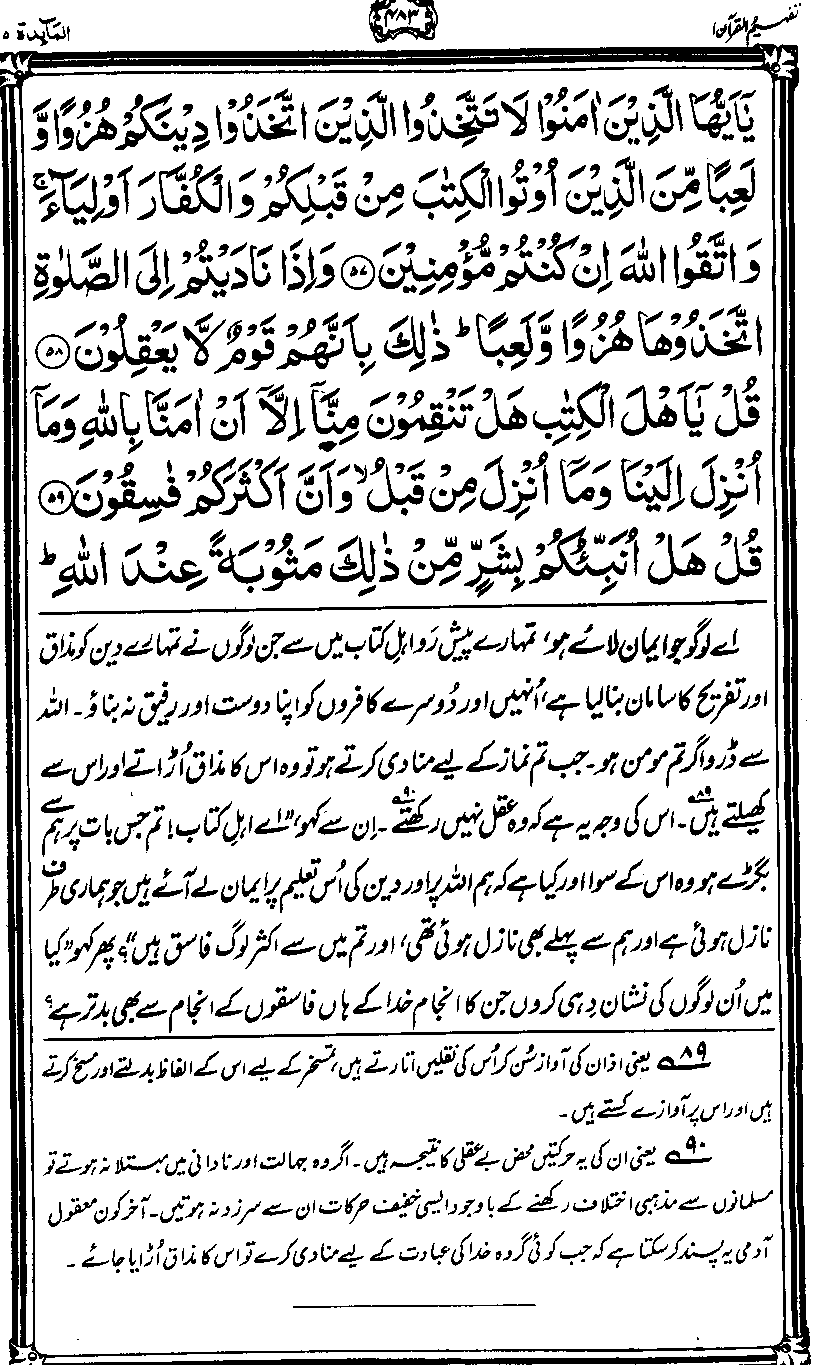 تفہیم القرآن ۱
۴۸۳
المآیدۃ ۵
يٰٓاَيُّهَا الَّذِيْنَ اٰمَنُوْا لَا تَتَّخِذُوا الَّذِيْنَ اتَّخَذُوْا دِيْنَكُمْ هُزُوًا وَّ
لَعِبًا مِّنَ الَّذِيْنَ اُوْتُوا الْكِتٰبَ مِنْ قَبْلِكُمْ وَالْكُفَّارَ اَوْلِيَآءَ ۚ
وَاتَّقُوا اللّٰهَ اِنْ كُنْتُمْ مُّؤْمِنِيْنَ ۵۷ وَاِذَا نَادَيْتُمْ اِلَى الصَّلٰوةِ
اتَّخَذُوْهَا هُزُوًا وَّلَعِبًا ؕ ذٰلِكَ بِاَنَّهُمْ قَوْمٌ لَّا يَعْقِلُوْنَ ۵۸
قُلْ يٰٓاَهْلَ الْكِتٰبِ هَلْ تَنْقِمُوْنَ مِنَّاۤ اِلَّاۤ اَنْ اٰمَنَّا بِاللّٰهِ وَمَاۤ
اُنْزِلَ اِلَيْنَا وَمَاۤ اُنْزِلَ مِنْ قَبْلُ ۙ وَاَنَّ اَكْثَرَكُمْ فٰسِقُوْنَ ۵۹
قُلْ هَلْ اُنَبِّئُكُمْ بِشَرٍّ مِّنْ ذٰلِكَ مَثُوْبَةً عِنْدَ اللّٰهِ ؕ
اے لوگو جو ایمان لائے ہو، تمہارے پیش رَو اہلِ کتاب میں سے جن لوگوں نے تمہارے دین کو مذاق
اور تفریح کا سامان بنا لیا ہے، اُنہیں اور دُوسرے کافروں کو اپنا دوست اور رفیق نہ بناؤ۔ اللہ
سے ڈرو اگر تم مومن ہو۔ جب تم نماز کے لیے منادی کرتے ہو تو وہ اس کا مذاق اُڑاتے اور اس سے
کھیلتے ہیں۸۹۔ اس کی وجہ یہ ہے کہ وہ عقل نہیں رکھتے۹۰۔ اِن سے کہو، ”اے اہلِ کتاب! تم جس بات پر ہم سے
بگڑے ہو وہ اس کے سوا اور کیا ہے کہ ہم اللہ پر اور دین کی اُس تعلیم پر ایمان لے آئے ہیں جو ہماری طرف
نازل ہوئی ہے اور ہم سے پہلے بھی نازل ہوئی تھی، اور تم میں سے اکثر لوگ فاسق ہیں“؟ پھر کہو ”کیا
میں اُن لوگوں کی نشان دہی کروں جن کا انجام خدا کے ہاں فاسقوں کے انجام سے بھی بدتر ہے؟
۸۹ یعنی اذان کی آواز سُن کر اُس کی نقلیں اتارتے ہیں، تمسخر کے لیے اس کے الفاظ بدلتے اور مسخ کرتے
ہیں اور اس پر آوازے کستے ہیں۔
۹۰ یعنی ان کی یہ حرکتیں محض بے عقلی کا نتیجہ ہیں۔ اگر وہ جہالت اور نادانی میں مبتلا نہ ہوتے تو
مسلمانوں سے مذہبی اختلاف رکھنے کے باوجود ایسی خفیف حرکات ان سے سرزد نہ ہوتیں۔ آخر کون معقول
آدمی یہ پسند کر سکتا ہے کہ جب کوئی گروہ خدا کی عبادت کے لیے منادی کرے تو اس کا مذاق اُڑایا جائے۔